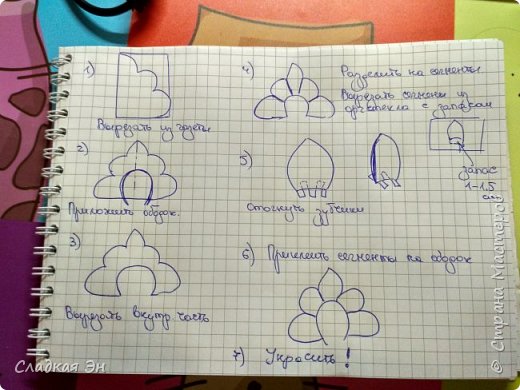 1)
Вырезать из газеты
2)
Приложить ободок.
3)
Вырезать внутр часть
4)
Разделить на сегменты.
Вырезать сегмены из
оргстекла с запасом
запас
1-1,5
см
5)
Отогнуть зубчики
6) Приклеить сегменты на ободок
7) Украсить!
Сладкая Эн
© Страна Мастеров